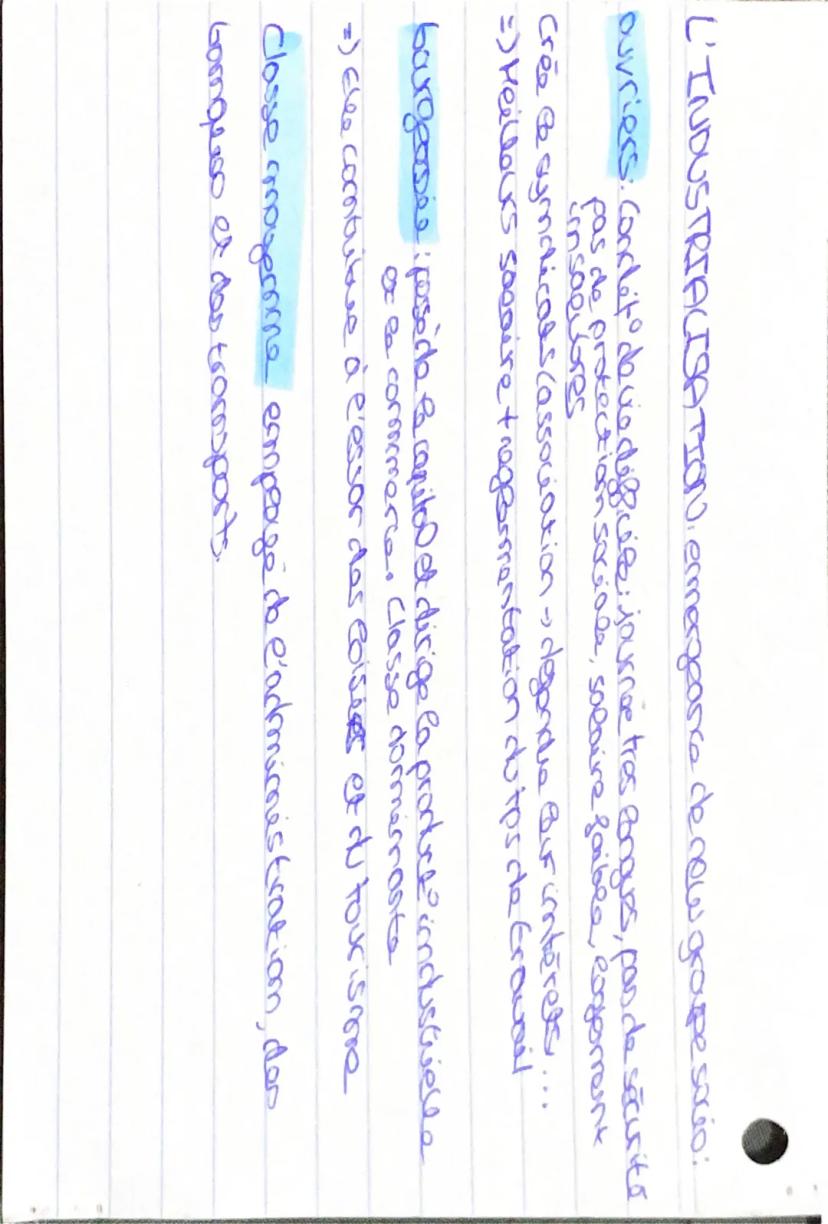 L'INDUSTRIALISATION: emergence de new groupe socio:
ouvriers: Condit° de vie difficile: journée très longues, pas de sécurité
pas de protection sociale, salaire faible, logement
insalubres
Crée le syndicales (association → degendre leur intérêts...
=) Meilleurs salaire + ragformentation du tps de travail
bourgeoisie: possède le capital et dirige la product° industrielle
et le commerce. Classe dominante
=) Elle contribue à l'essor des loisirs et du tourisme
Classe moyenne employé de l'administration, des
banques et des transports.